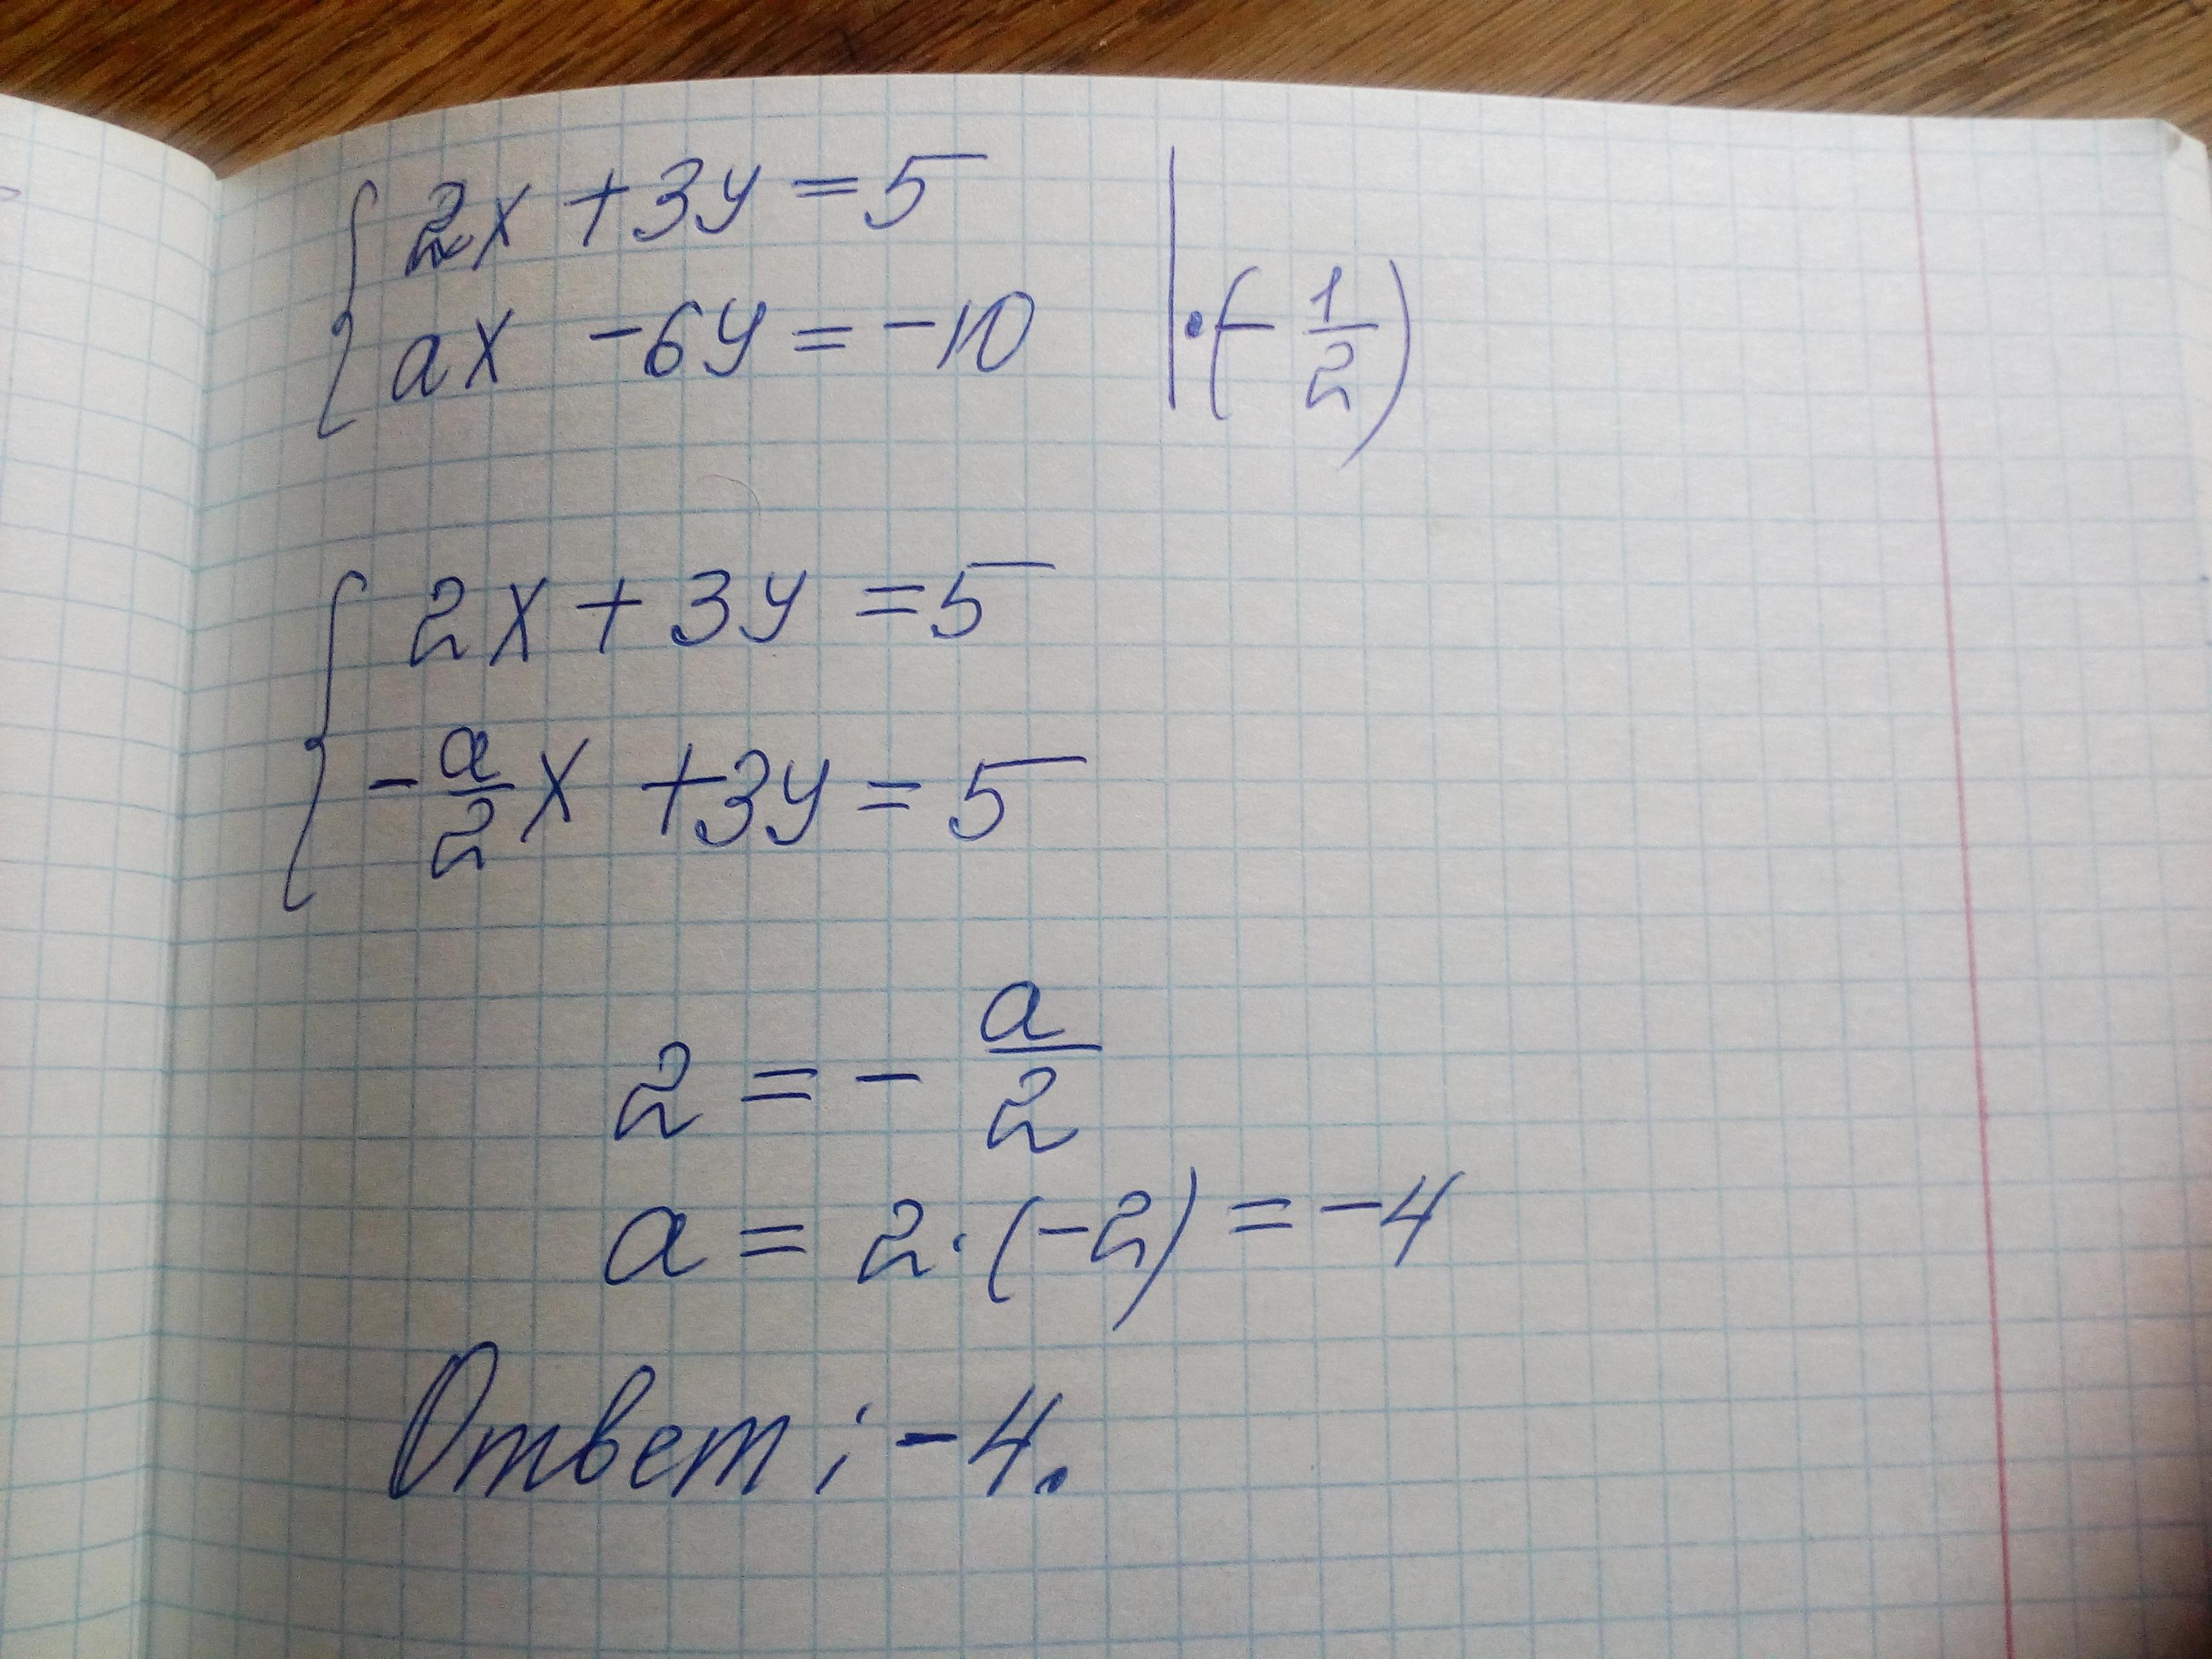 { 2x + 3y = 5
ax - 6y = -10 | · (- 1/2)
{ 2x + 3y = 5
- a/2 x + 3y = 5
2 = - a/2
a = 2 · (-2) = -4
Ответ: -4.